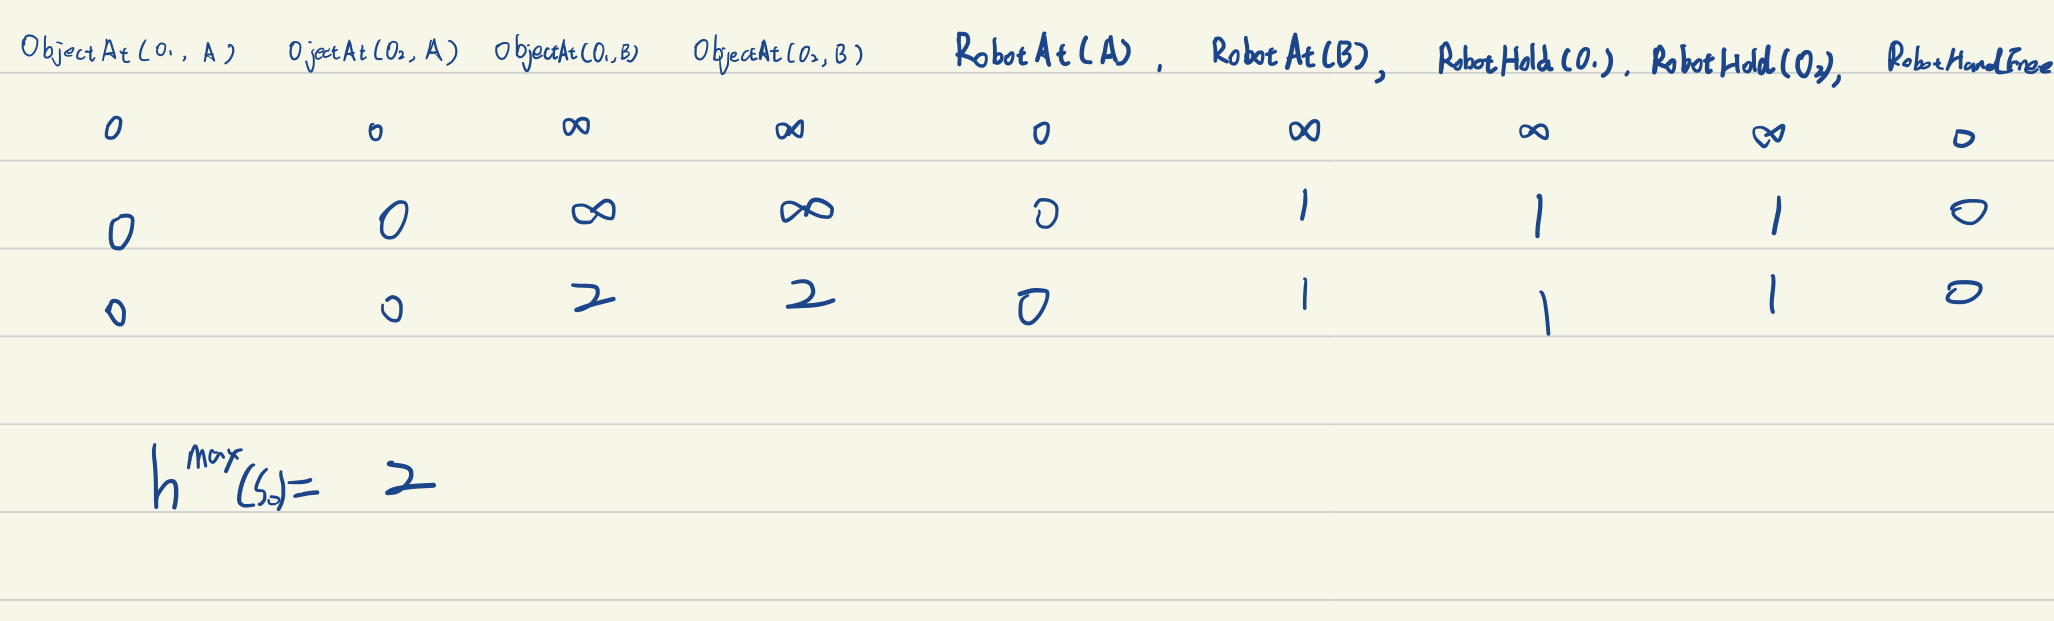 ObjectAt(O₁, A) OjectAt(O₂, A) ObjectAt(O₁, B) ObjectAt(O₂, B) RobotAt(A), RobotAt(B), RobotHold(O₁), RobotHold(O₂), RobotHandFree
0 0 ∞ ∞ 0 ∞ ∞ ∞ 0
0 0 ∞ ∞ 0 1 1 1 0
0 0 2 2 0 1 1 1 0
h^max(S₀) = 2